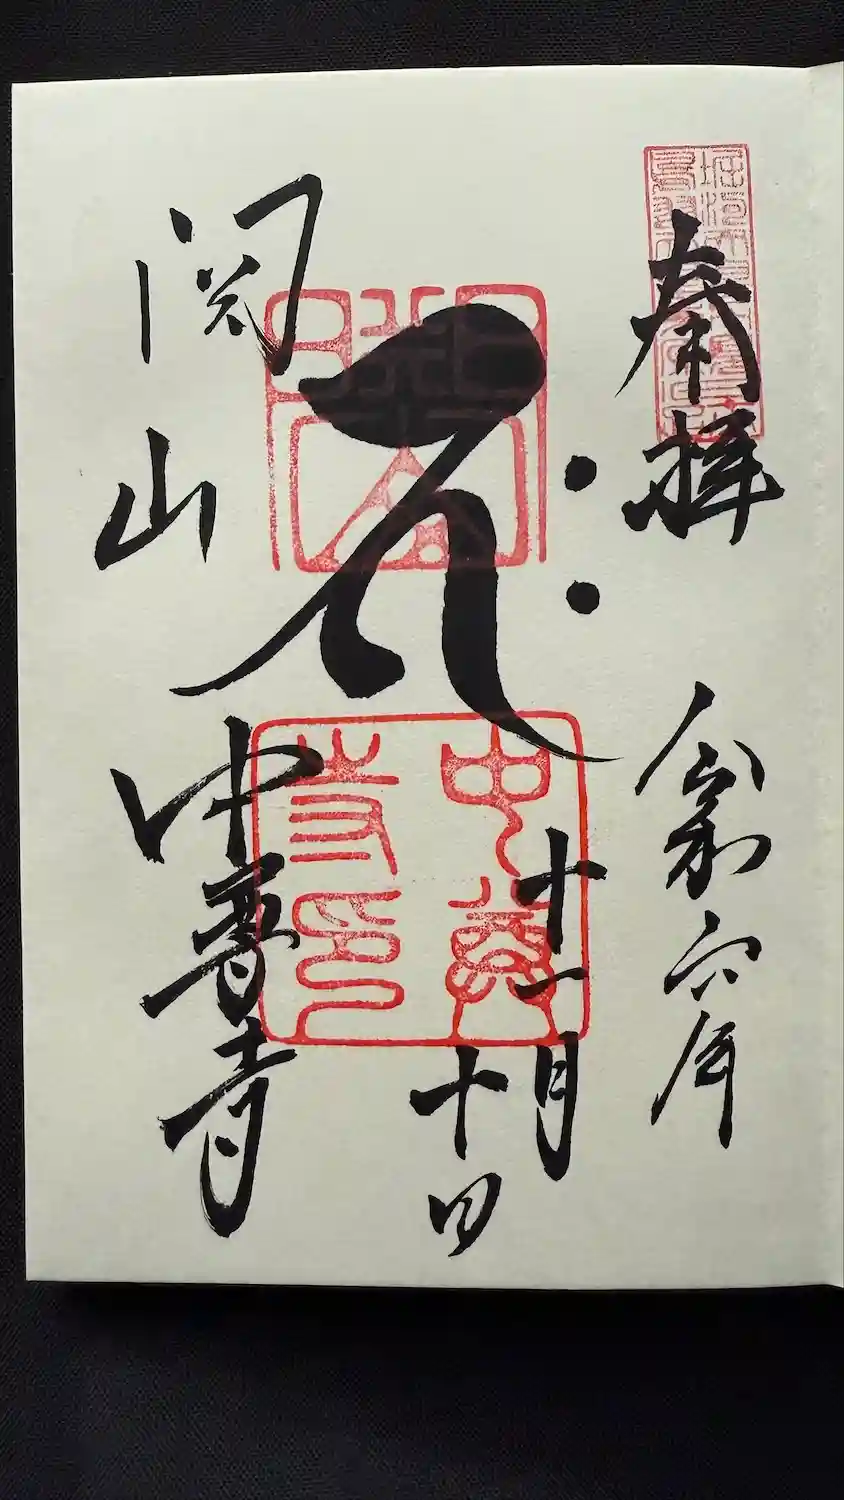 奉拝
令和六年
十一月
十日
関山
中尊寺
中尊
寺印